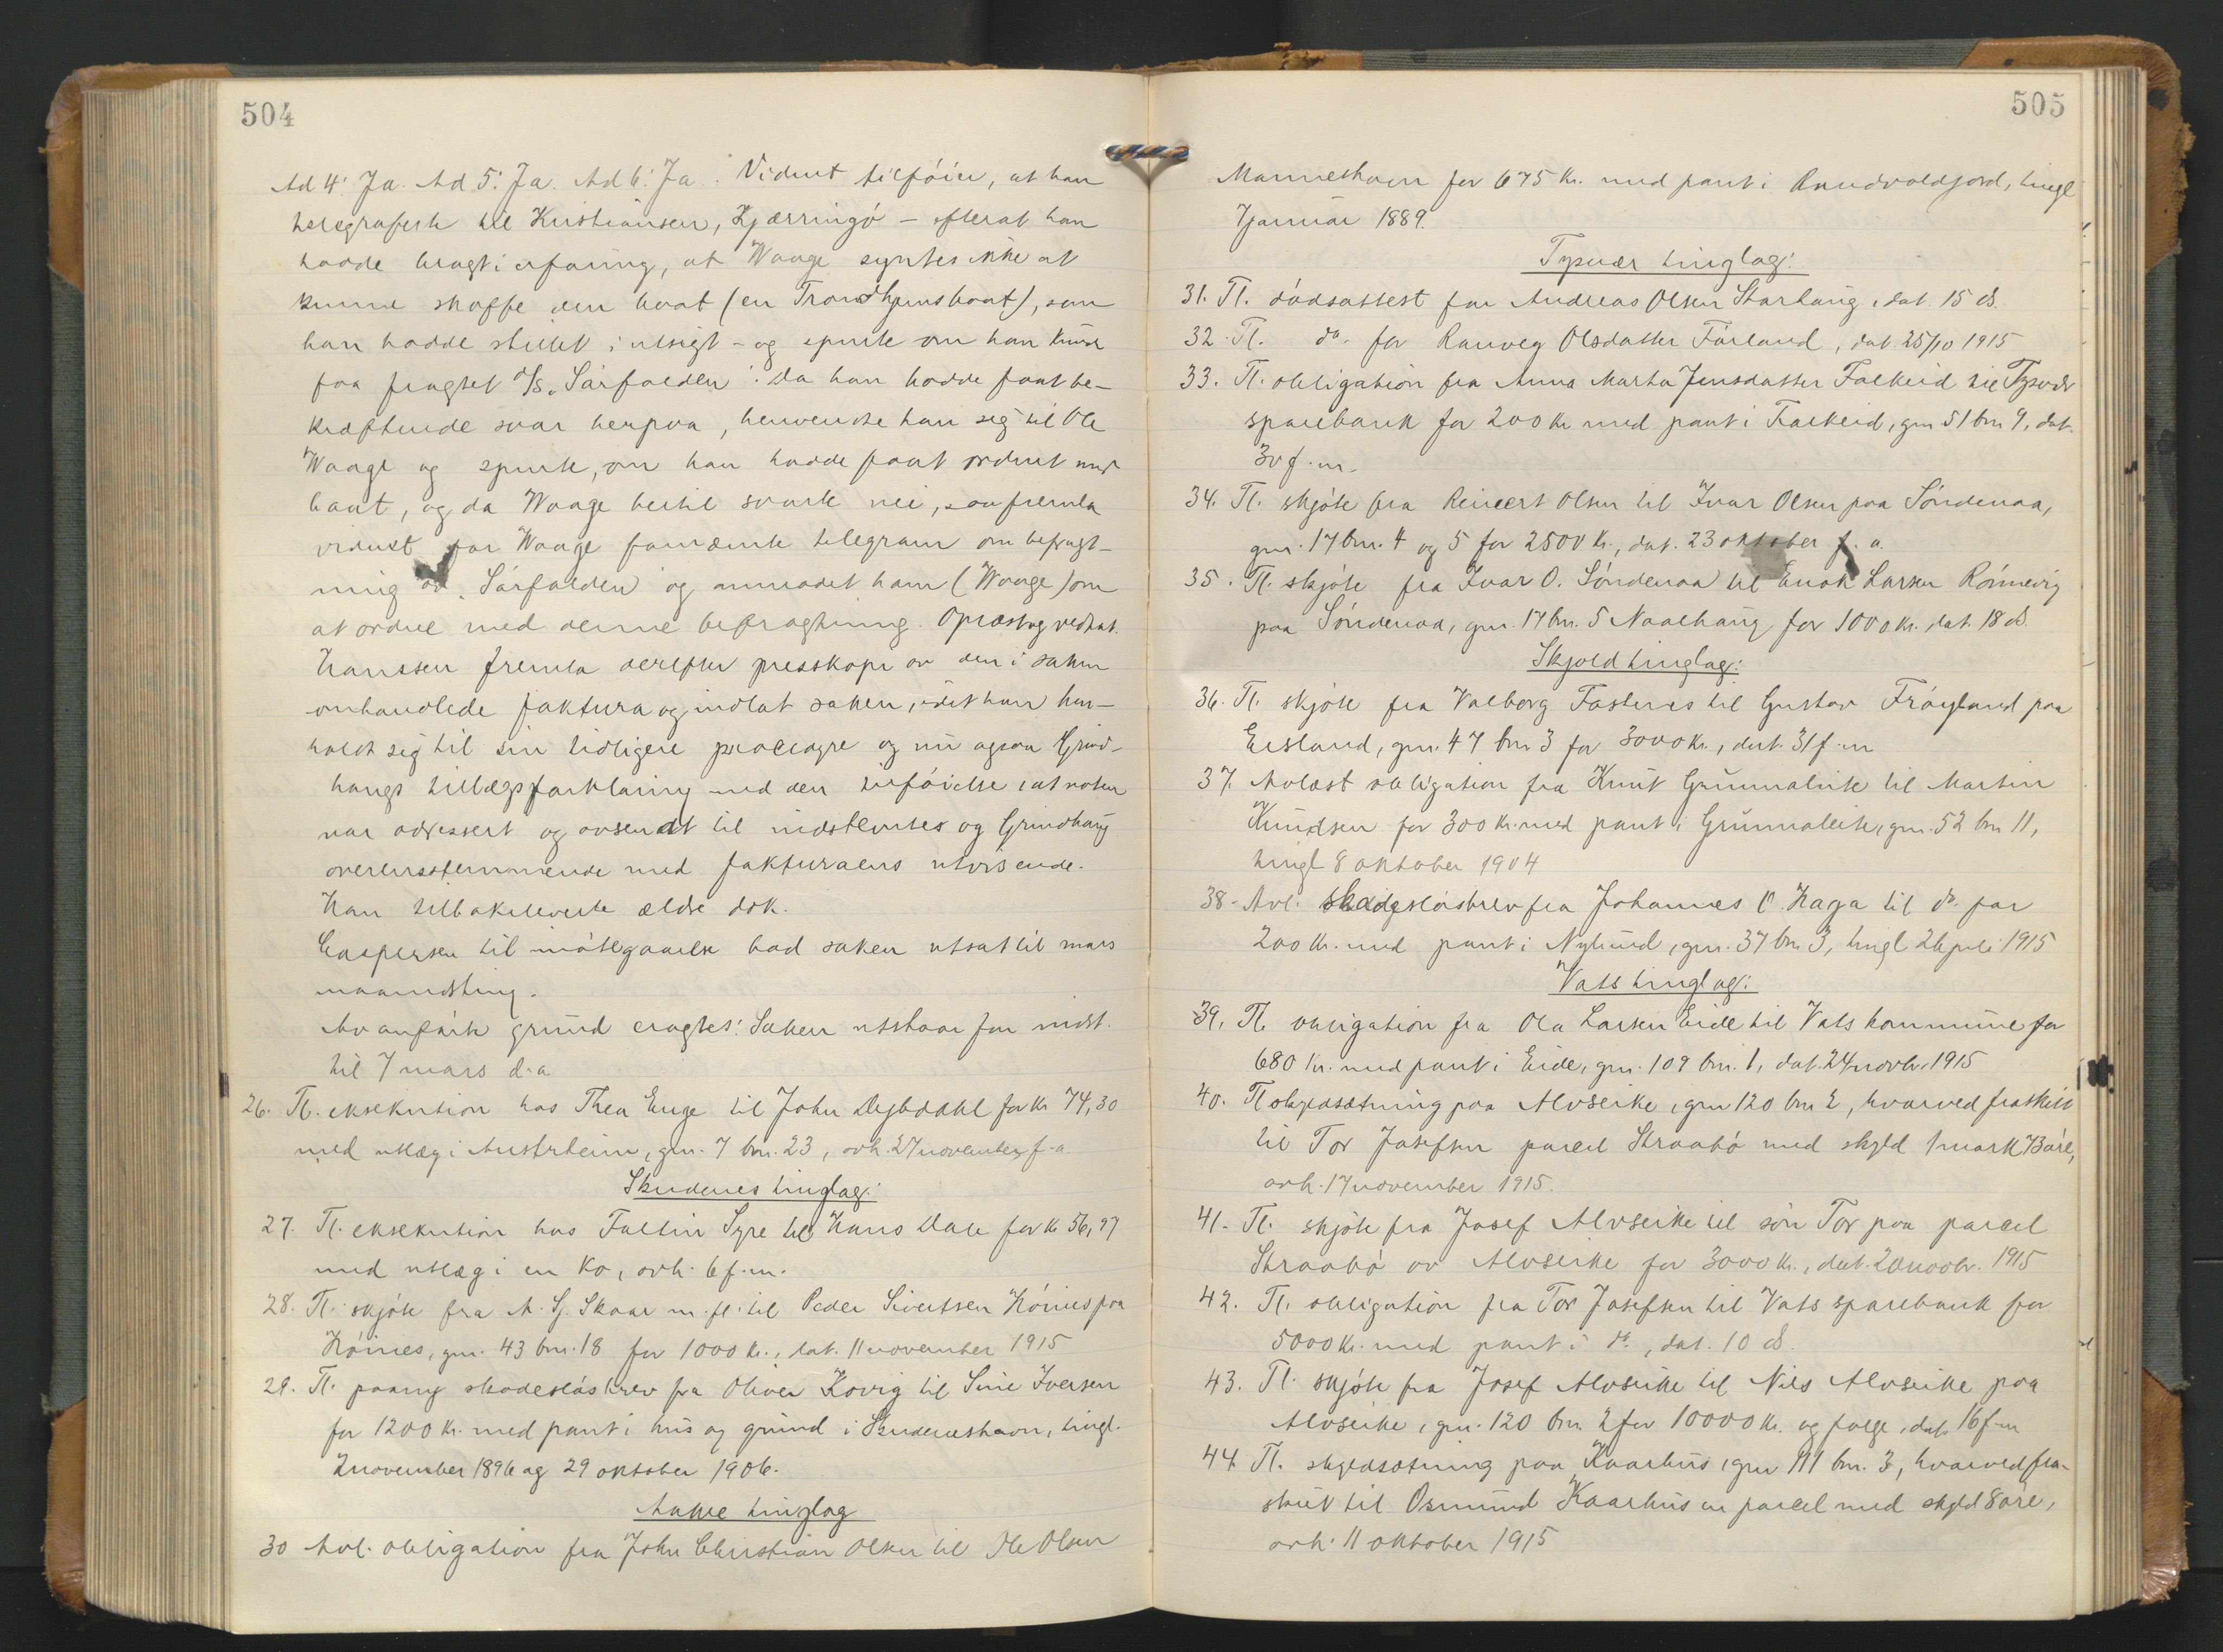 504
Ad 4: Ja. Ad 5: Ja. Ad 6: Ja. Vidnet tilføier, at han
telegraferte til Kristiansen, Kjærringø – efterat han
hadde bragt i erfaring, at Waage syntes ikke at
kunne skaffe den baat (en Trondhjemsbaat), som
han hadde stillet i utsigt – og spurte om han kunde
faa fragtet d/s „Sørfolden". Da han hadde faat be-
kræftende svar herpaa, henvendte han sig til Ole
Waage og spurte, om han hadde faat ordnet med
baat, og da Waage hertil svarte nei, saa fremla
vidnet for Waage fornævnte telegram om befragt-
ning av „Sørfolden" og anmodet ham (Waage) om
at ordne med denne befragtning. Oplæst og vedtat.
Hanssen fremla derefter presskopi av den i saken
omhandlede faktura og indlot saken, idet han hen-
holdt sig til sin tidligere procedyre og nu ogsaa Grind-
haugs tillægsforklaring med den tilføielse, at noten
var adressert og avsendt til indstevntes og Grindhaug
overensstemmende med fakturaens utvisende.
Han tilbakeleverte ældre dok.
Caspersen til imøtegaaelse bad saken utsat til mars
maanedsting.
Av anførte grund eragtes: Saken utstaar for indst.
til 7 mars d.a.
26. Tl. eksekution hos Thea Enge til John Dybdahl for kr 74,30
med utlæg i Austrheim, gnr. 7 bnr. 23, avh. 27 november f.a.
Skudenes tinglag:
27. Tl. eksekution hos Faltin Syre til Hans Dale for kr 56,97
med utlæg i en ko, avh. 6 f.m.
28. Tl. skjøte fra A. Sj. Skaar m.fl. til Peder Sivertsen Høines paa
Høines, gnr. 43 bnr. 18 for 1000 kr., dat. 11 november 1915
29. Tl. paany skadesløsbrev fra Oliver Kovig til Sine Iversen
for 1200 kr. med pant i hus og grund i Skudeneshavn, tingl.
2 november 1896 og 29 oktober 1906.
Aakre tinglag
30 Avl. obligation fra John Christian Olsen til Ole Olsen
505
Manneshavn for 675 kr. med pant i Rundvoldjord, tingl
7 januar 1889.
Tysvær tinglag:
31. Tl. dødsattest for Andreas Olsen Storhaug, dat. 15 ds.
32. Tl. do. for Ranveg Olsdatter Førland, dat. 25/10 1915
33. Tl. obligation fra Anna Marta Jensdatter Falkeid til Tysvær
sparebank for 200 kr med pant i Falkeid, gnr 51 bnr 9, dat.
30 f.m.
34. Tl. skjøte fra Reinert Olsen til Ivar Olsen paa Søndenaa,
gnr. 17 bnr. 4 og 5 for 2500 kr., dat. 23 oktober f.a.
35. Tl. skjøte fra Ivar O. Søndenaa til Enok Larsen Rønnevig
paa Søndenaa, gnr. 17 bnr. 5 Naalhaug for 1000 kr., dat. 18 ds.
Skjold tinglag:
36. Tl. skjøte fra Valborg Fosternes til Gustav Frøyland paa
Eisland, gnr. 47 bnr 3 for 3000 kr., dat. 31 f.m
37. Avlæst obligation fra Knut Grunnaleite til Martin
Knudsen for 300 kr. med pant i Grunnaleite, gnr. 52 bnr 11,
tingl 8 oktober 1904
38. Avl. skadesløsbrev fra Johannes O. Haga til do. for
200 kr. med pant i Nylund, gnr. 37 bnr 3, tingl 26 juli 1915
Vats tinglag:
39. Tl. obligation fra Ola Larsen Eide til Vats kommune for
680 kr. med pant i Eide, gnr. 109 bnr. 1, dat. 24 novbr. 1915
40. Tl skyldsætning paa Alvseike, gnr 120 bnr 2, hvorved fraskilt
til Tor Josefsen parcel Straabø med skyld 1 mark 13 øre,
avh. 17 november 1915.
41. Tl. skjøte fra Josef Alvseike til søn Tor paa parcel
Straabø av Alvseike for 3000 kr., dat. 20 novbr. 1915
42. Tl. obligation fra Tor Josefsen til Vats sparebank for
5000 kr. med pant i do., dat. 10 ds.
43. Tl. skjøte fra Josef Alvseike til Nils Alvseike paa
Alvseike, gnr. 120 bnr. 2 for 10000 kr. og følge, dat. 16 f.m
44. Tl. skyldsætning paa Kaarhus, gnr 111 bnr. 3, hvorved fra-
skilt til Osmund Kaarhus en parcel med skyld 8 øre,
avh. 11 oktober 1915